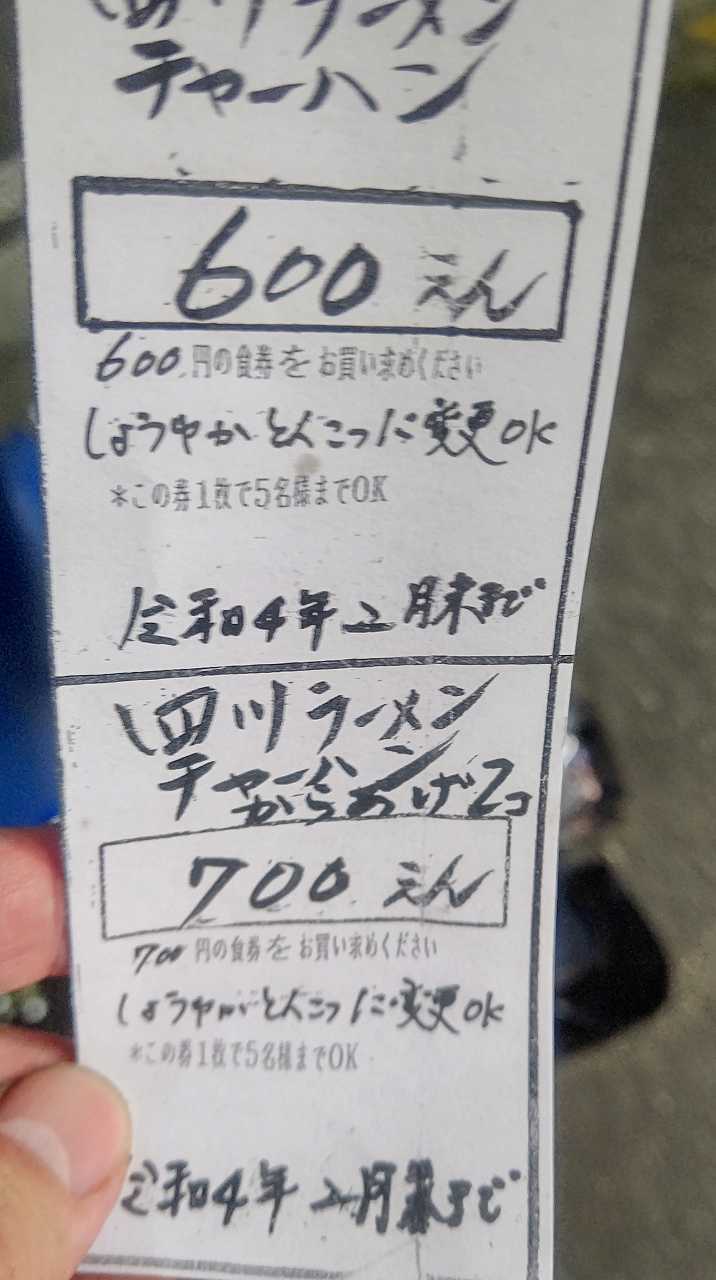 四川ラーメン
チャーハン
600えん
600円の食券をお買い求めください
しょうゆかとんこつに変更OK
*この券1枚で5名様までOK
令和4年2月末まで
四川ラーメン
チャーハン
からあげ2コ
700えん
700円の食券をお買い求めください
しょうゆかとんこつに変更OK
*この券1枚で5名様までOK
令和4年2月末まで